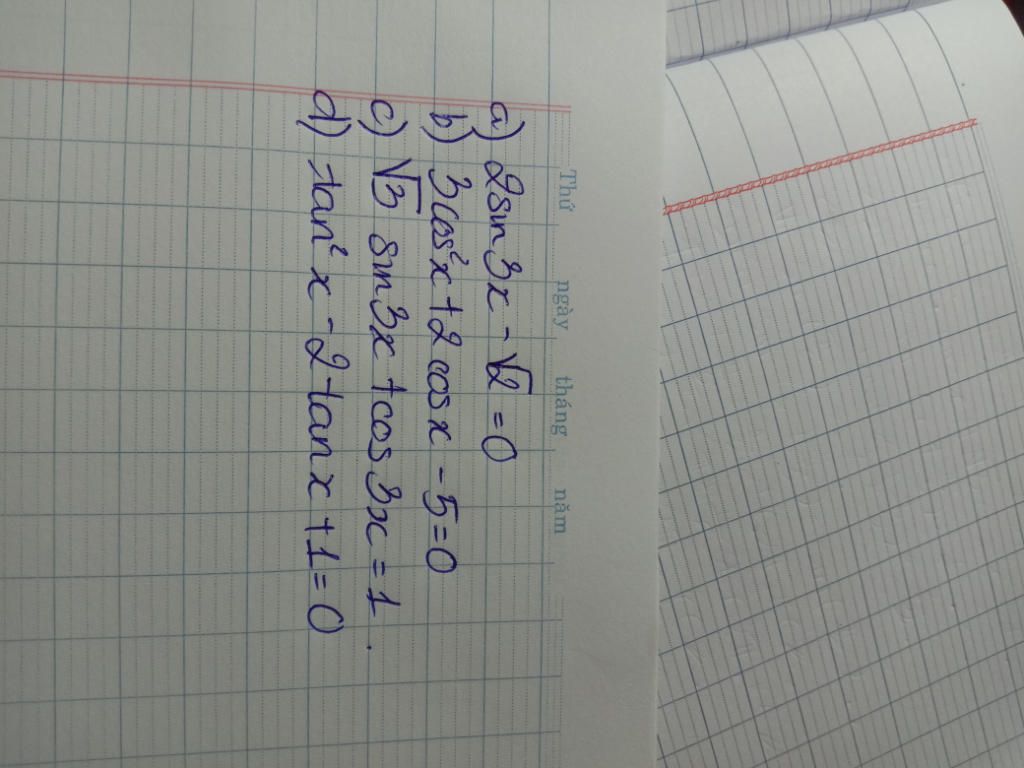 Thứ ngày tháng năm
a) 2sin3x - √2 = 0
b) 3cos²x + 2cosx - 5 = 0
c) √3 sin3x + cos3x = 1.
d) tan²x - 2tanx + 1 = 0